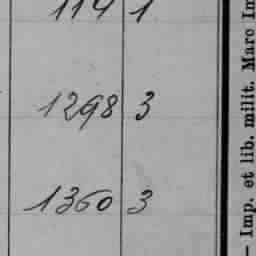 1298 3
1360 3
— Imp. et lib. milit. Marc Im